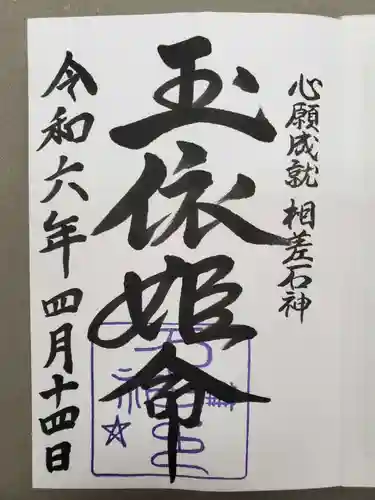 心願成就 相差石神
玉依姫命
令和六年四月十四日